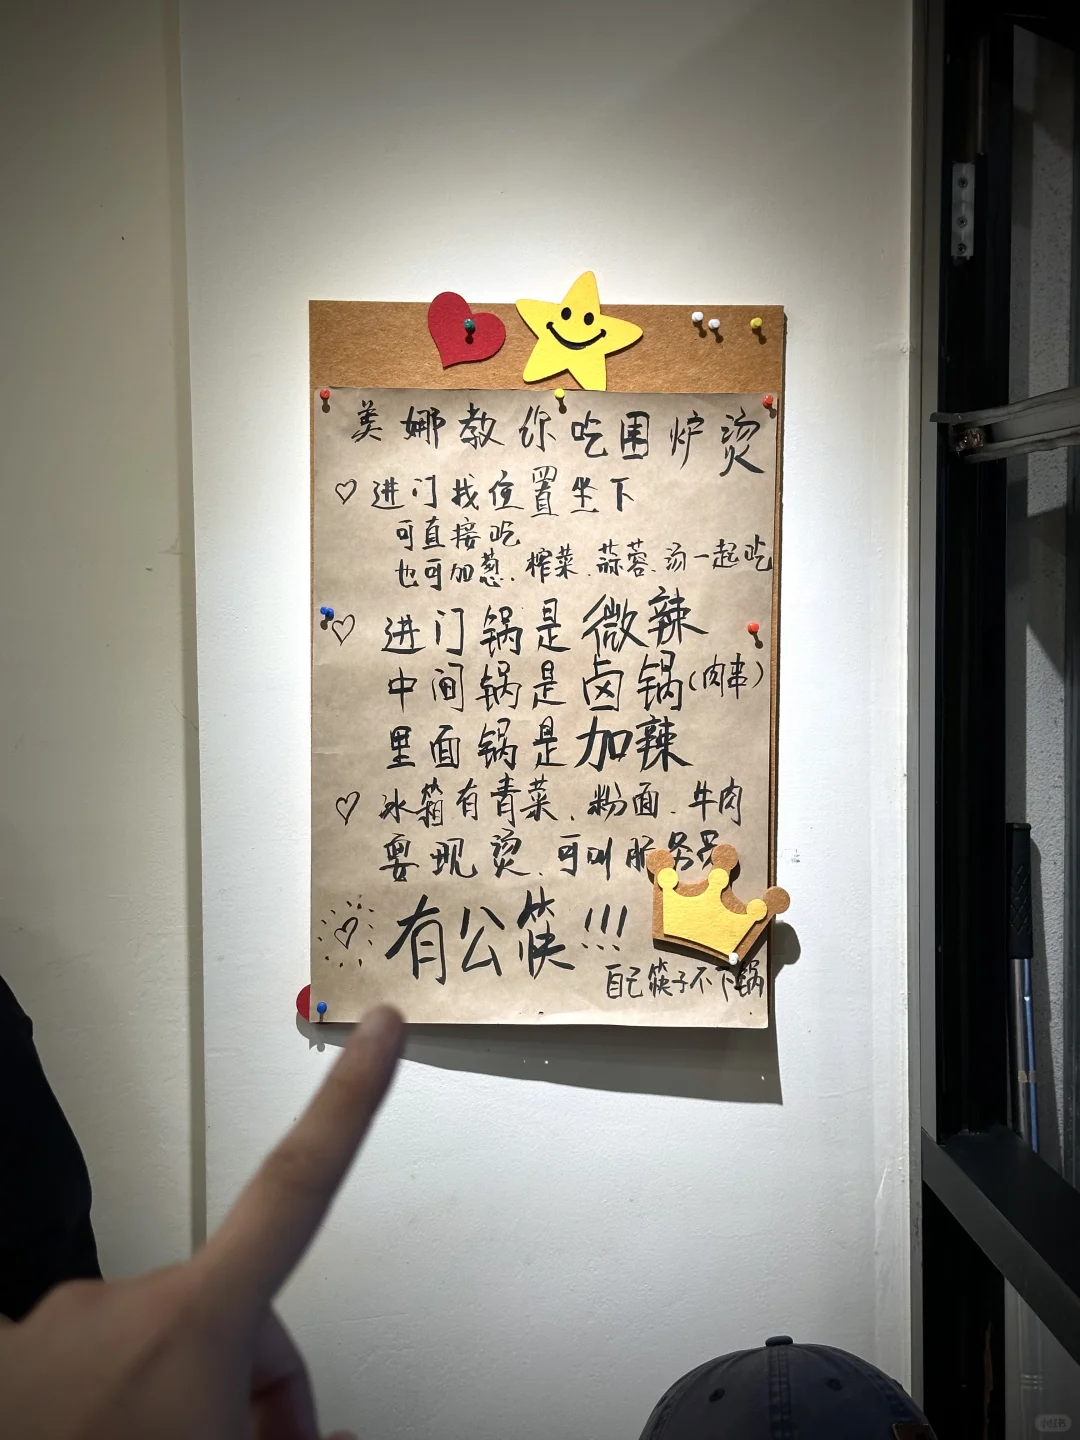 美娜教你吃围炉烫
♡进门找位置坐下
可直接吃
也可加葱、榨菜、蒜蓉、汤一起吃
♡进门锅是微辣
中间锅是卤锅(肉串)
里面锅是加辣
♡冰箱有青菜、粉面、牛肉
要现烫、可叫服务员
♡有公筷!!!
自己筷子不下锅
小红书